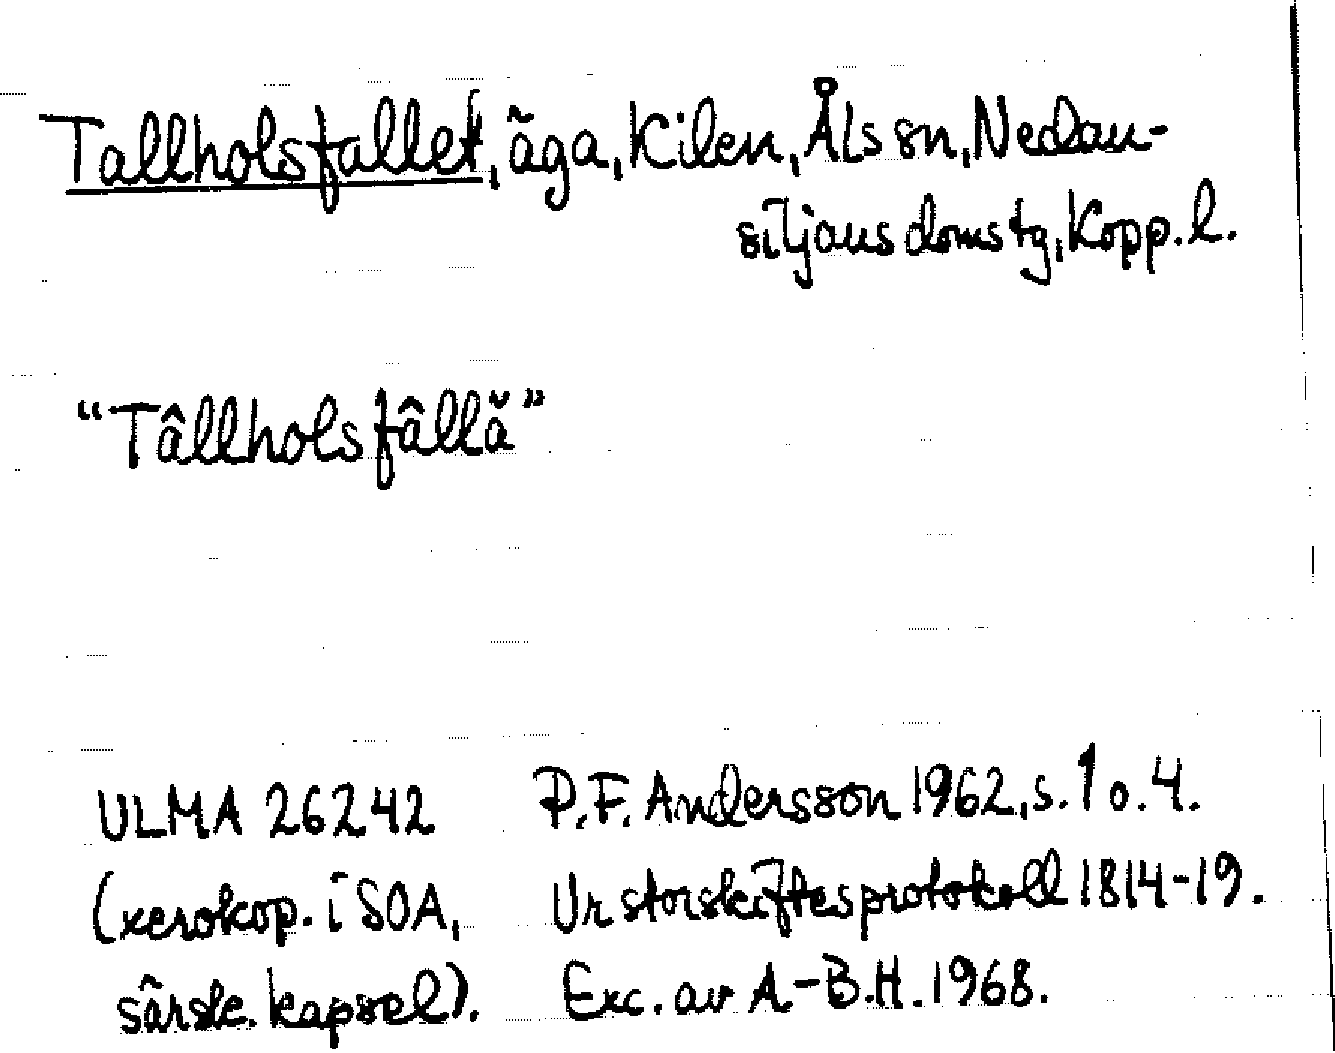 Tallholsfallet, äga, Kilen, Åls sn, Nedan-
siljans domstg, Kopp. l.
"Tâllholsfâllă"
ULMA 26242 P.F. Andersson 1962, s. 1 o. 4.
(xerokop. i SOA, Ur storskiftesprotokoll 1814-19.
särsk. kapsel). Exc. av A-B.H. 1968.